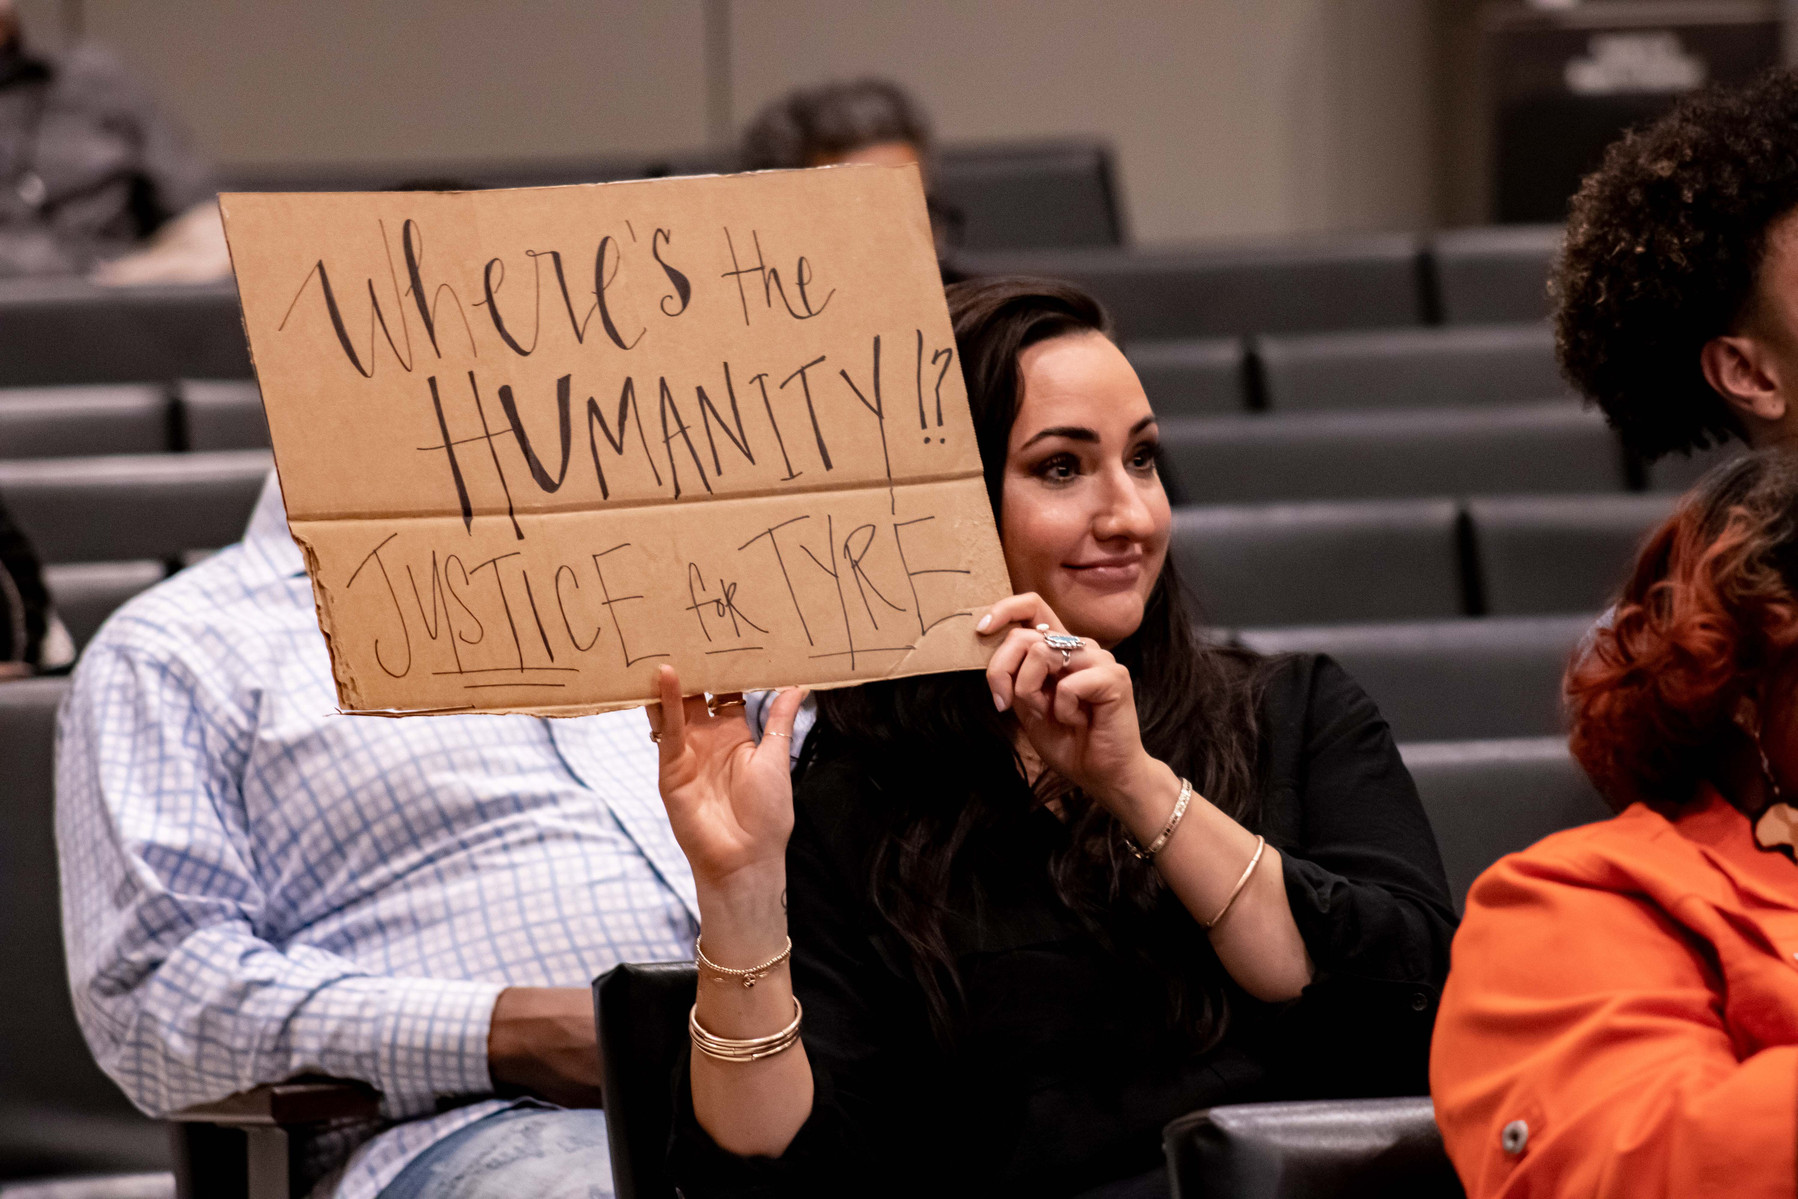 Where's the
HUMANITY!?
JUSTICE for TYRE